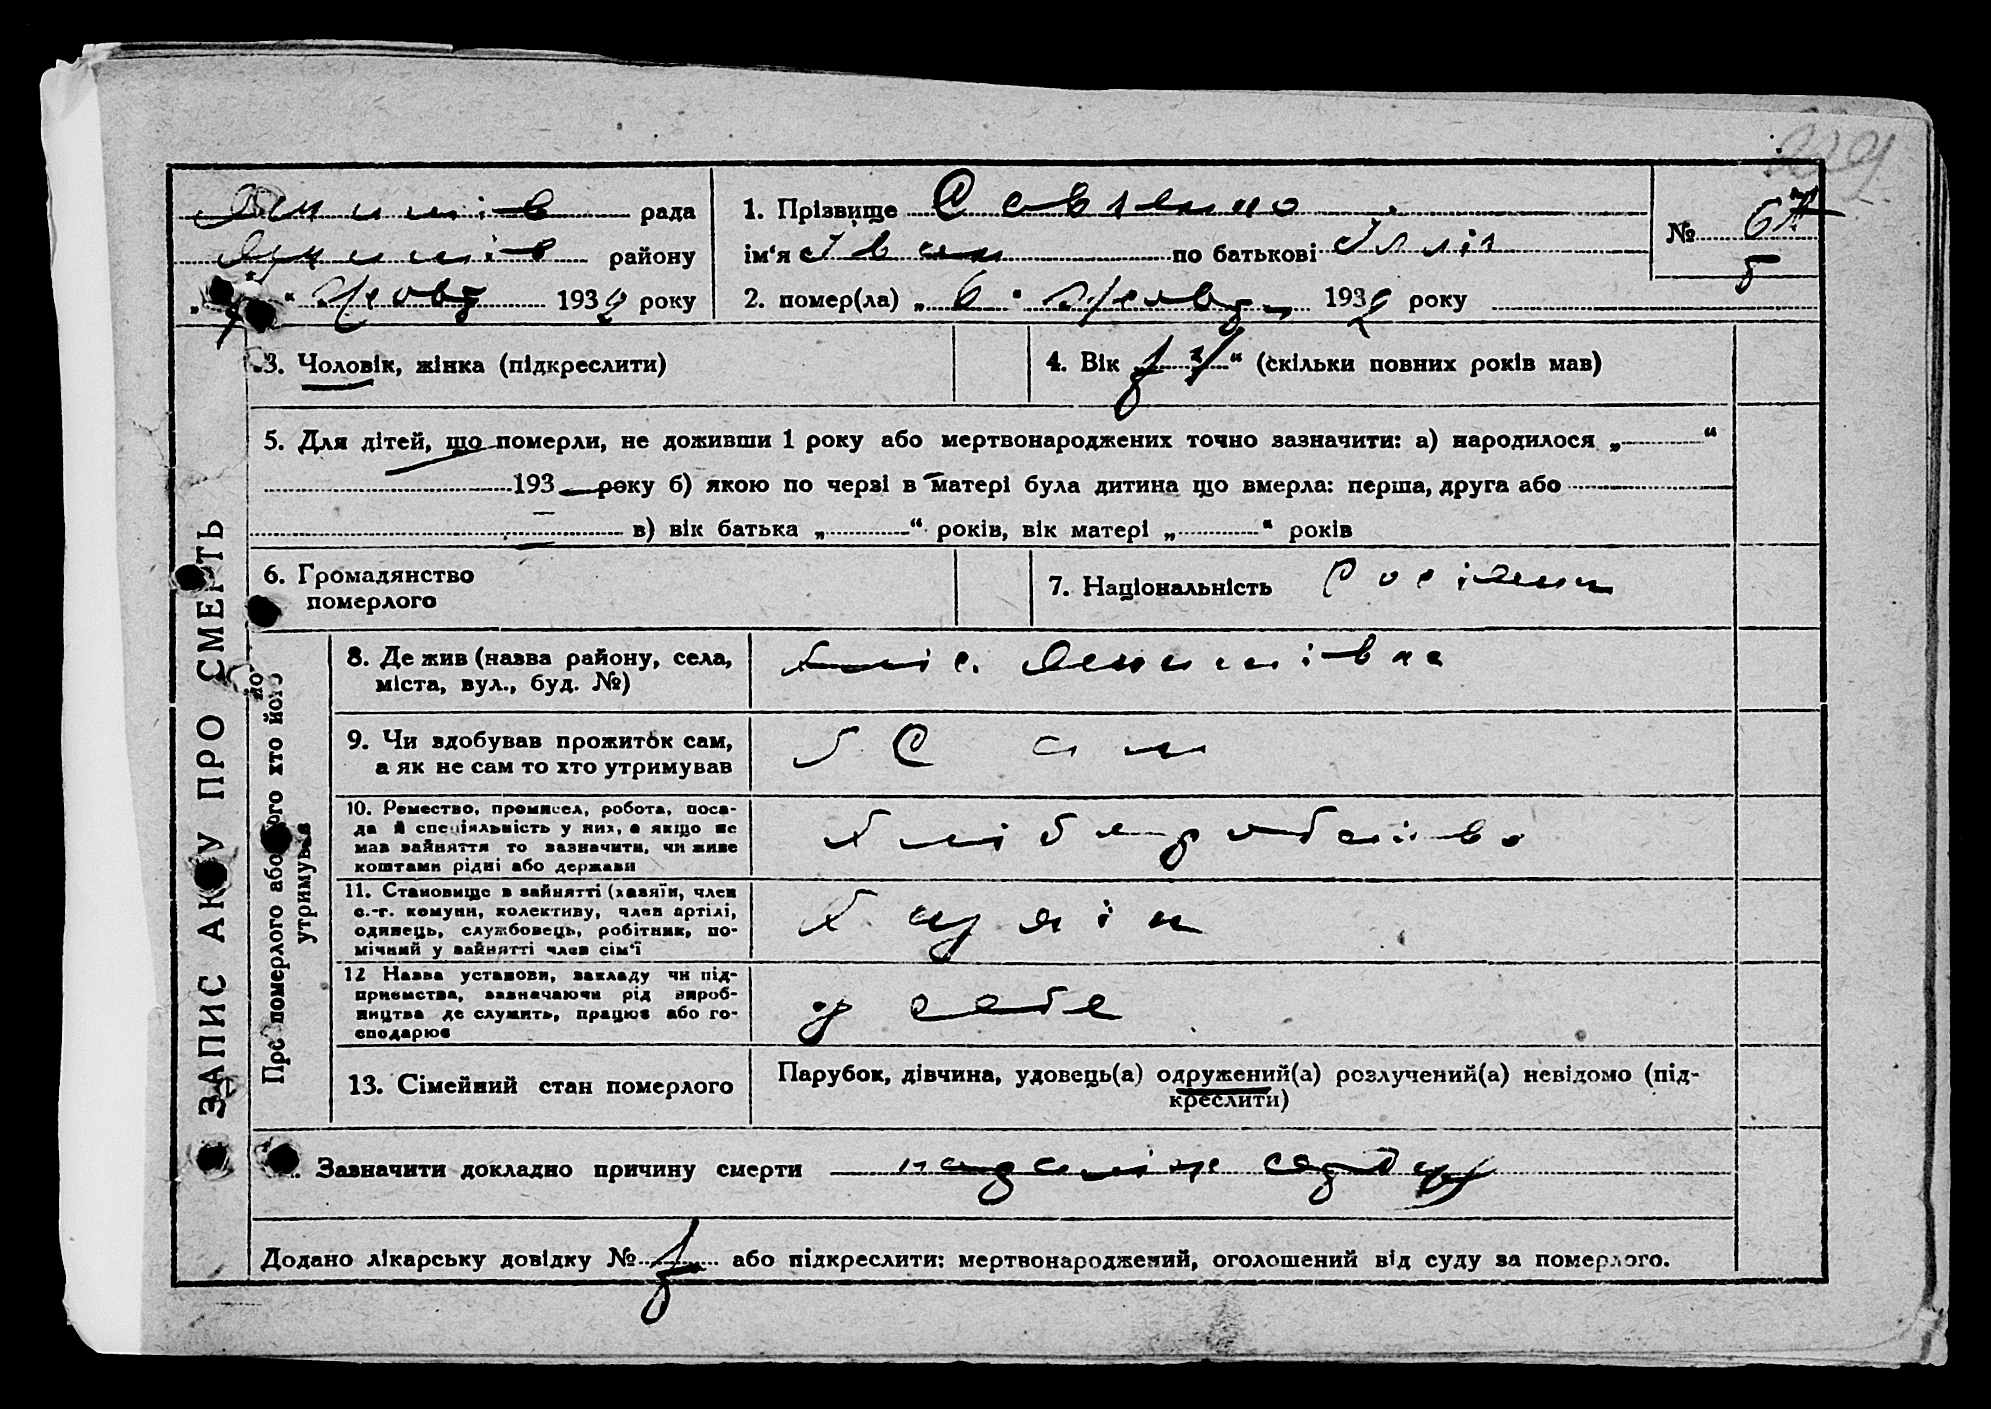 229
рада
району
193 2 року
1. Прізвище
ім'я Іван по батькові Ілліч
2. помер(ла) „ 6 " Жовт 193 2 року
№ 67
5
ЗАПИС АКТУ ПРО СМЕРТЬ
3. Чоловік, жінка (підкреслити)
4. Вік „ “ (скільки повних років мав)
5. Для дітей, що померли, не доживши 1 року або мертвонароджених точно зазначити: а) народилося „ “
193 року б) якою по черзі в матері була дитина що вмерла: перша, друга або
в) вік батька „ “ років, вік матері „ “ років
6. Громадянство
померлого
7. Національність
Про померлого або того хто його
утримував
8. Де жив (назва району, села,
міста, вул., буд. №)
9. Чи здобував прожиток сам,
а як не сам то хто утримував
Сам
10. Ремество, промисел, робота, поса-
да й спеціяльність у них, а якщо не
мав зайняття то зазначити, чи живе
коштами рідні або держави
Хліборобство
11. Становище в зайнятті (хазяїн, член
с.-г. комуни, колективу, член артілі,
одинець, службовець, робітник, по-
мічний у зайнятті член сім'ї
12 Назва установи, закладу чи під-
приємства, зазначаючи рід вироб-
ництва де служить, працює або го-
сподарює
у себе
13. Сімейний стан померлого
Парубок, дівчина, удовець(а) одружений(а) розлучений(а) невідомо (під-
креслити)
Зазначити докладно причину смерти
Додано лікарську довідку № або підкреслити: мертвонароджений, оголошений від суду за померлого.